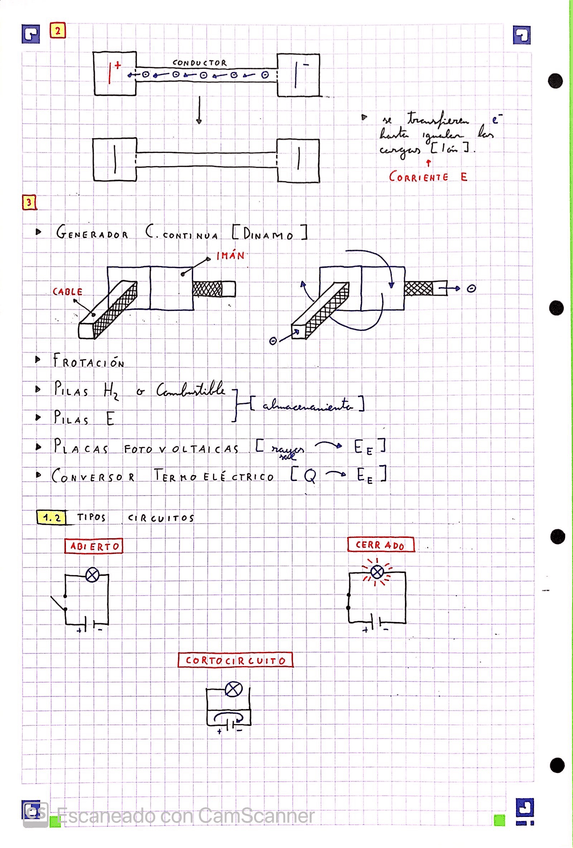 2
1+
CONDUCTOR
1-
se transfieren e-
hasta igualar las
cargas [ 1 ón ].
CORRIENTE E
3
GENERADOR C. CONTINUA [DINAMO]
IMÁN
CABLE
FROTACIÓN
PILAS H2 o Combustible
[almacenamiento]
PILAS E
PLACAS FOTOVOLTAICAS [rayos sol → EE]
CONVERSOR TERMOELÉCTRICO [Q → EE]
1.2 TIPOS CIRCUITOS
ABIERTO
CERRADO
+ -
+ -
CORTOCIRCUITO
+ -
CS Escaneado con CamScanner